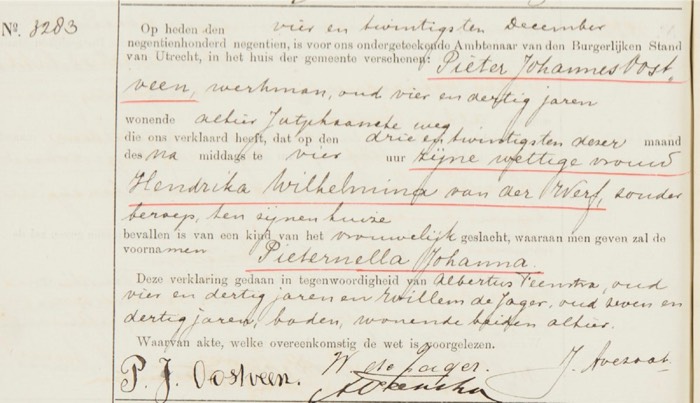 Nº. 3283
Op heden den vier en twintigsten December
negentienhonderd negentien, is voor ons ondergeteekende Ambtenaar van den Burgerlijken Stand
van Utrecht, in het huis der gemeente verschenen: Pieter Johannes Oost-
veen, werkman, oud vier en dertig jaren
wonende alhier Jutphaasche weg
die ons verklaard heeft, dat op den drie en twintigsten dezer maand
des na middags te vier uur zijne wettige vrouw
Hendrika Wilhelmina van der Werf, zonder
beroep, ten zijnen huize
bevallen is van een kind van het vrouwelijk geslacht, waaraan men geven zal de
voornamen Pieternella Johanna.
Deze verklaring gedaan in tegenwoordigheid van Albertus Feenstra, oud
vier en dertig jaren en Willem de Jager, oud zeven en
dertig jaren, boden, wonende beiden alhier.
Waarvan akte, welke overeenkomstig de wet is voorgelezen.
P. J. Oostveen. W. de Jager. J. Avezaat
A Feenstra